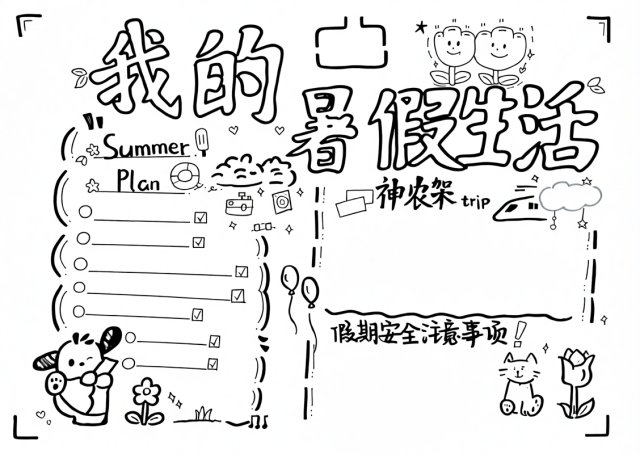 我的
暑假生活
Summer
Plan
神农架 trip
假期安全注意事项!